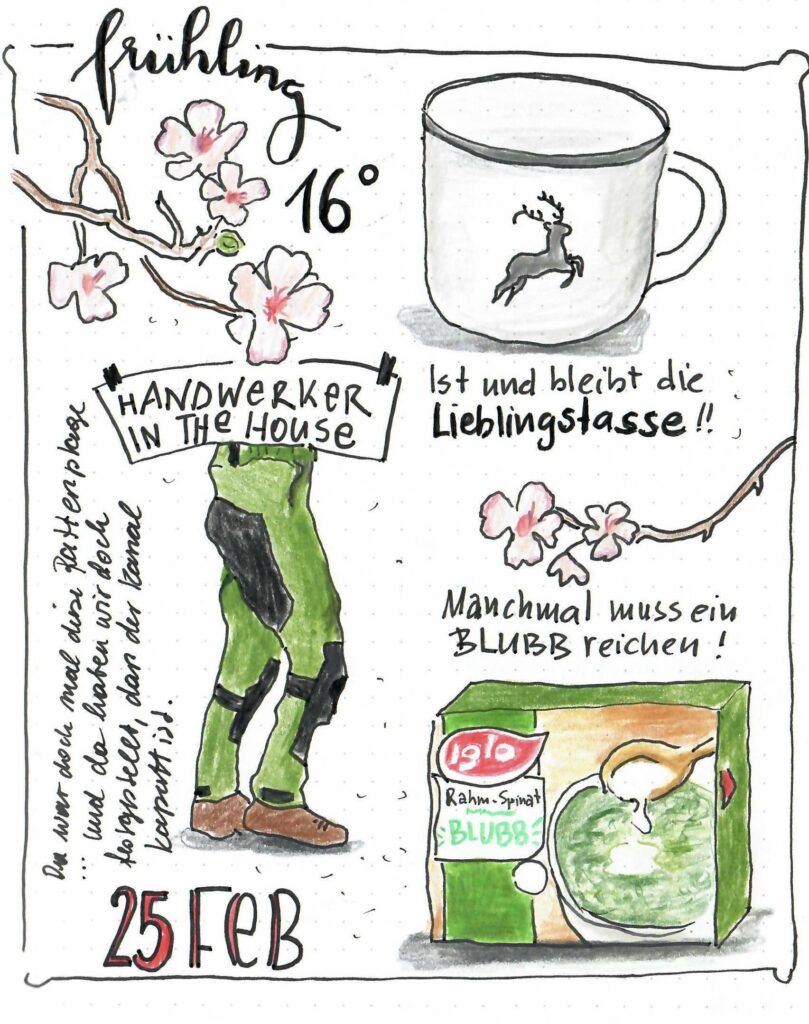 frühling
16°
Ist und bleibt die
Lieblingstasse!!
HANDWERKER
IN THE HOUSE
Da war doch mal diese Rattenplage
... und da haben wir doch
festgestellt, dass der Kanal
kaputt ist.
Manchmal muss ein
BLUBB reichen!
iglo
Rahm-Spinat
BLUBB
25 FEB